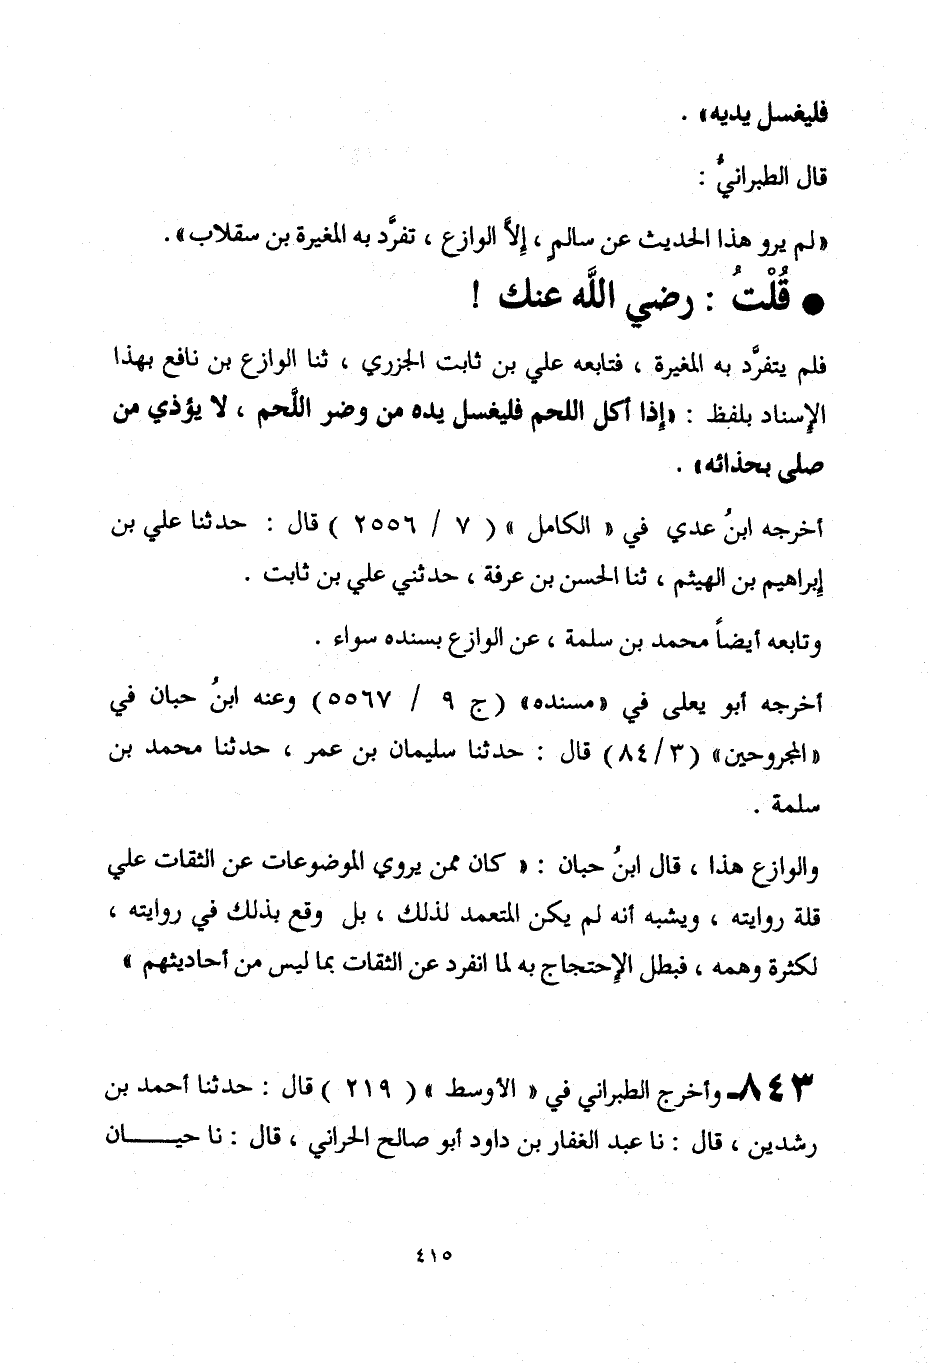 فليغسل يديه» .
قال الطبرانيُّ :
«لم يرو هذا الحديث عن سالمٍ ، إلاَّ الوازع ، تفرَّد به المغيرة بن سقلاب» .
● قُلْتُ : رضي اللَّه عنك !
فلم يتفرَّد به المغيرة ، فتابعه علي بن ثابت الجزري ، ثنا الوازع بن نافع بهذا
الإسناد بلفظ : «إذا أكل اللحم فليغسل يده من وضر اللَّحم ، لا يؤذي من
صلى بحذائه» .
أخرجه ابنُ عدي في « الكامل » ( ٧ / ٢٥٥٦ ) قال : حدثنا علي بن
إبراهيم بن الهيثم ، ثنا الحسن بن عرفة ، حدثني علي بن ثابت .
وتابعه أيضاً محمد بن سلمة ، عن الوازع بسنده سواء .
أخرجه أبو يعلى في «مسنده» (ج ٩ / ٥٥٦٧) وعنه ابنُ حبان في
«المجروحين» (٣/ ٨٤) قال : حدثنا سليمان بن عمر ، حدثنا محمد بن
سلمة .
والوازع هذا ، قال ابنُ حبان : « كان ممن يروي الموضوعات عن الثقات علي
قلة روايته ، ويشبه أنه لم يكن المتعمد لذلك ، بل وقع بذلك في روايته ،
لكثرة وهمه ، فبطل الإحتجاج به لما انفرد عن الثقات بما ليس من أحاديثهم »
٨٤٣ـ وأخرج الطبراني في « الأوسط » ( ٢١٩ ) قال : حدثنا أحمد بن
رشدين ، قال : نا عبد الغفار بن داود أبو صالح الحراني ، قال : نا حيـــــان
٤١٥